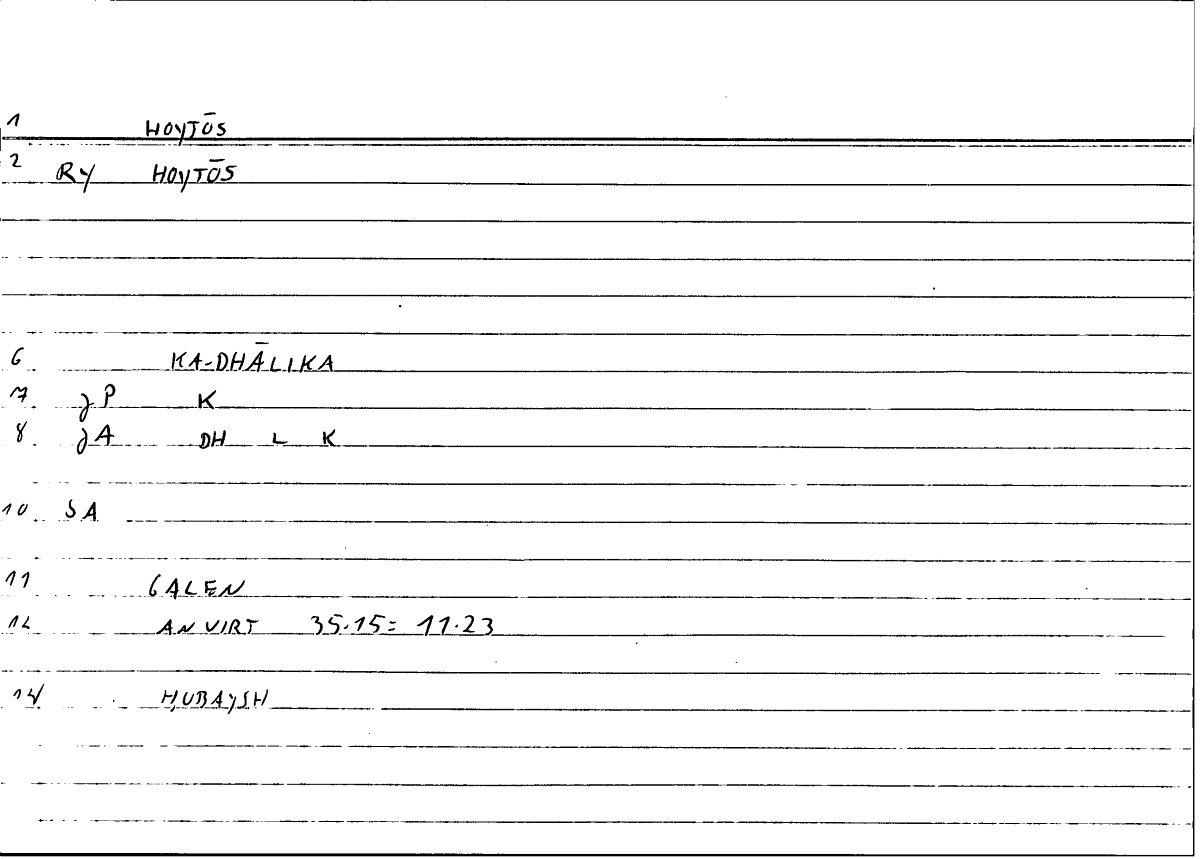 1 HOYTŌS
2 RY HOYTŌS
6 KA-DHĀLIKA
7 JP K
8 JA DH L K
10 SA
11 GALEN
12 AN VIRT 35.15= 11.23
14 ḤUBAYSH